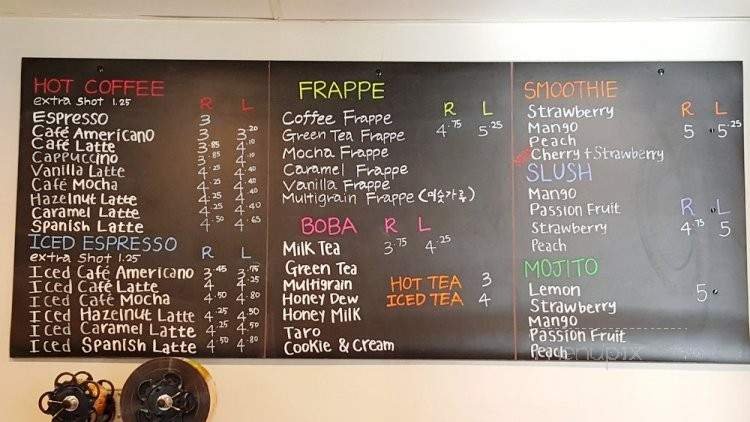 HOT COFFEE
extra shot 1.25 R L
Espresso 3
Café Americano 3 3.20
Café Latte 3.85 4.10
Cappuccino 3.85 4.10
Vanilla Latte 4.25 4.40
Café Mocha 4.25 4.40
Hazelnut Latte 4.25 4.40
Caramel Latte 4.25 4.40
Spanish Latte 4.50 4.65
ICED ESPRESSO
extra shot 1.25 R L
Iced Café Americano 3.45 3.75
Iced Café Latte 4 4.25
Iced Café Mocha 4.50 4.80
Iced Hazelnut Latte 4.25 4.50
Iced Caramel Latte 4.25 4.50
Iced Spanish Latte 4.50 4.80
FRAPPE
R L
Coffee Frappe
Green Tea Frappe 4.75 5.25
Mocha Frappe
Caramel Frappe
Vanilla Frappe
Multigrain Frappe (미숫가루)
BOBA R L
Milk Tea 3.75 4.25
Green Tea
Multigrain
Honey Dew
Honey Milk
Taro
Cookie & Cream
HOT TEA 3
ICED TEA 4
SMOOTHIE
Strawberry R L
Mango 5 5.25
Peach
Cherry + Strawberry
SLUSH
Mango
Passion Fruit R L
Strawberry 4.75 5
Peach
MOJITO
Lemon 5
Strawberry
Mango
Passion Fruit
Peach
menupix